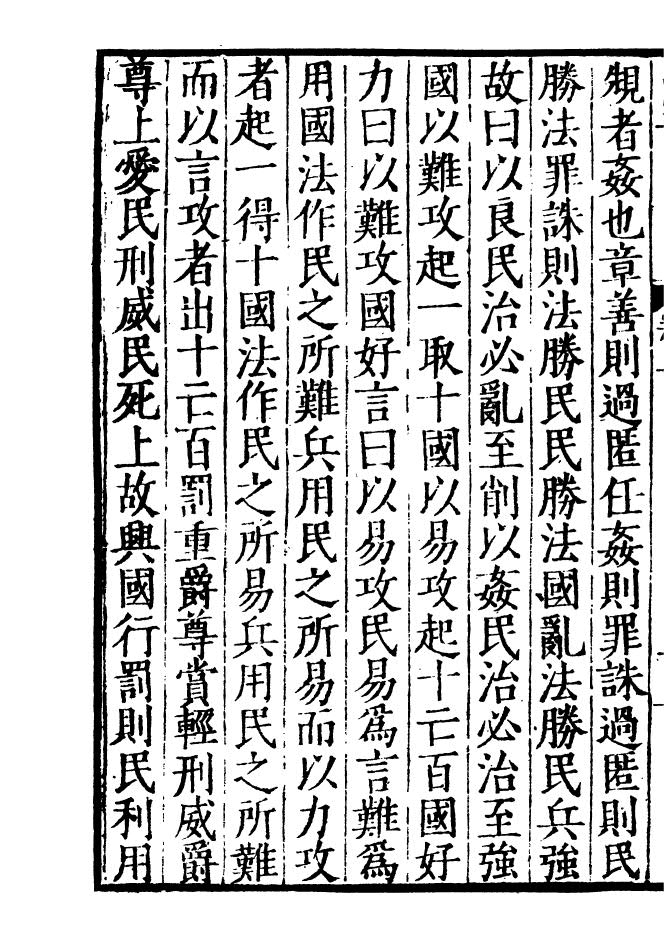 䙿者姦也章善則過匿任姦則罪誅過匿則民
勝法罪誅則法勝民民勝法國亂法勝民兵強
故曰以良民治必亂至削以姦民治必治至強
國以難攻起一取十國以易攻起十亡百國好
力曰以難攻國好言曰以易攻民易爲言難爲
用國法作民之所難兵用民之所易而以力攻
者起一得十國法作民之所易兵用民之所難
而以言攻者出十亡百罰重爵尊賞輕刑威爵
尊上愛民刑威民死上故興國行罰則民利用